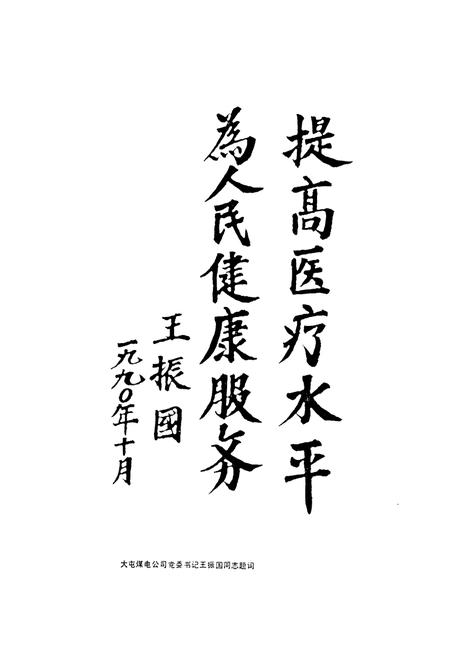 提高医疗水平
為人民健康服务
王振國
一九九〇年十月
大屯煤电公司党委书记王振国同志题词